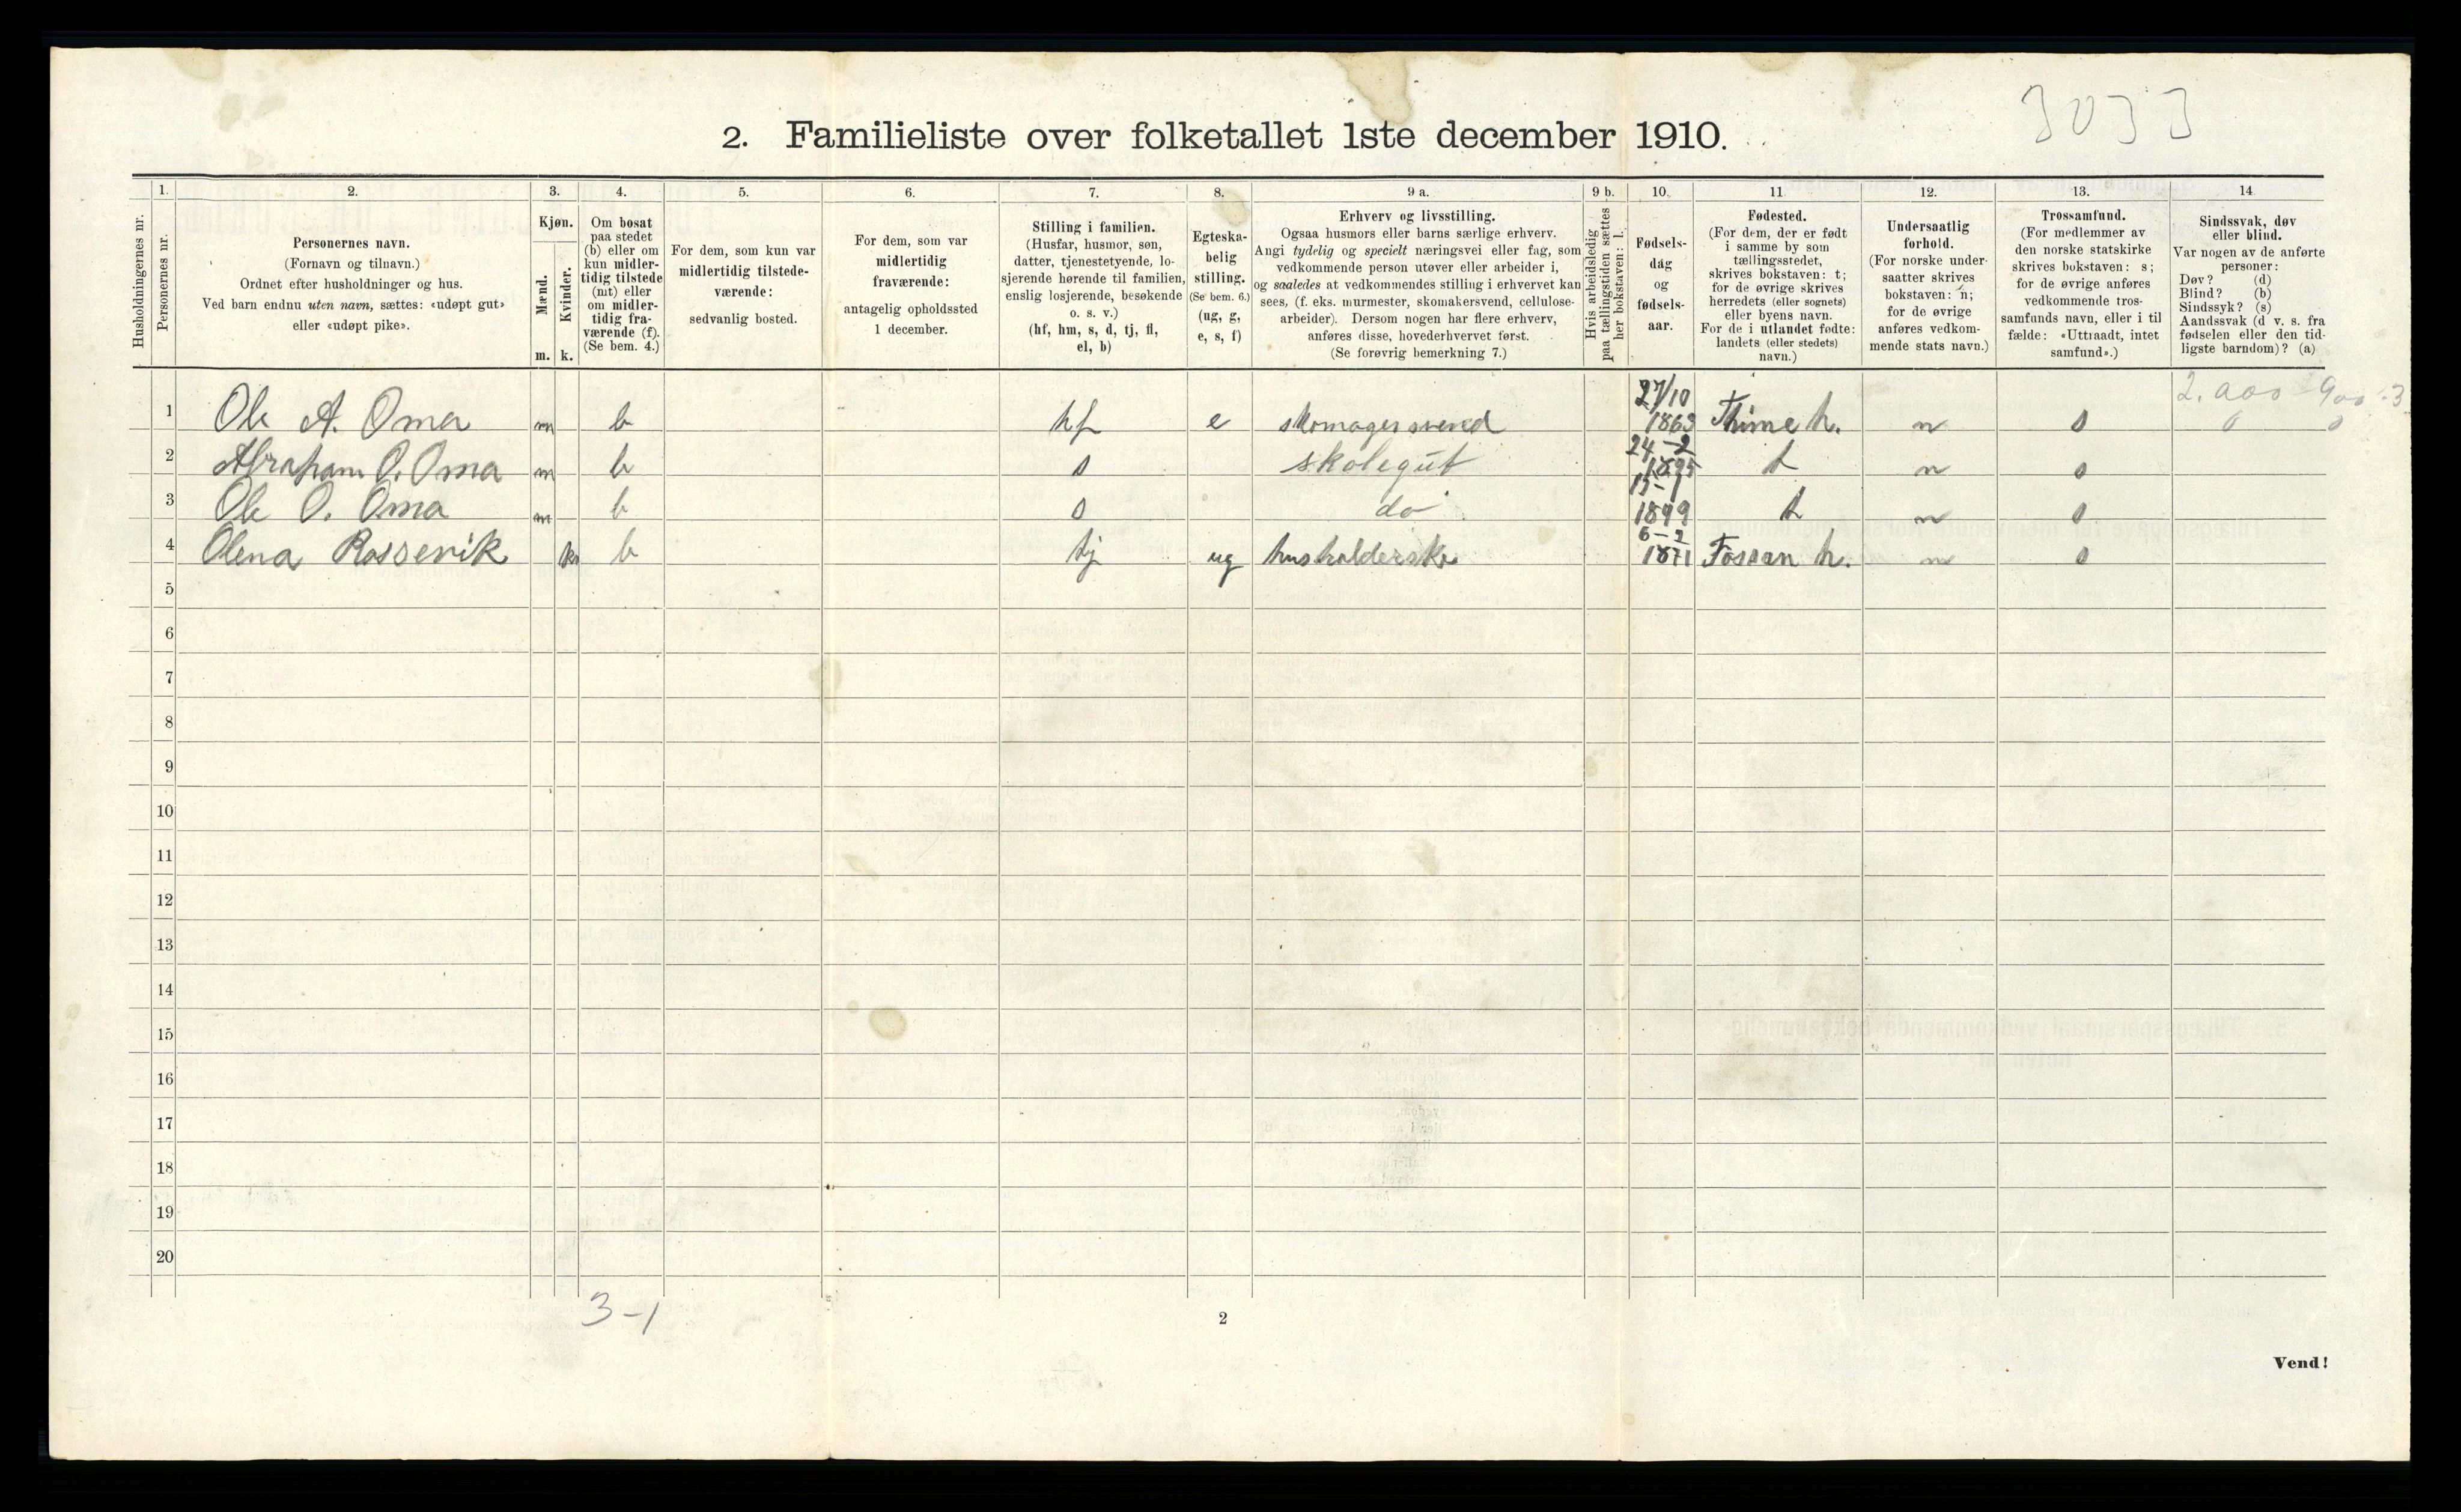 3033
2. Familieliste over folketallet 1ste december 1910.
Husholdningernes nr.
1.
Personernes nr.
2.
Personernes navn.
(Fornavn og tilnavn.)
Ordnet efter husholdninger og hus.
Ved barn endnu uten navn, sættes: «udøpt gut»
eller «udøpt pike».
3.
Kjøn.
Mænd.
Kvinder.
m. k.
4.
Om bosat
paa stedet
(b) eller om
kun midler-
tidig tilstede
(mt) eller
om midler-
tidig fra-
værende (f).
(Se bem. 4.)
5.
For dem, som kun var
midlertidig tilstede-
værende:
sedvanlig bosted.
6.
For dem, som var
midlertidig
fraværende:
antagelig opholdssted
1 december.
7.
Stilling i familien.
(Husfar, husmor, søn,
datter, tjenestetyende, lo-
sjerende hørende til familien,
enslig losjerende, besøkende
o. s. v.)
(hf, hm, s, d, tj, fl,
el, b)
8.
Egteska-
belig
stilling.
(Se bem. 6.)
(ug, g,
e, s, f)
9 a.
Erhverv og livsstilling.
Ogsaa husmors eller barns særlige erhverv.
Angi tydelig og specielt næringsvei eller fag, som
vedkommende person utøver eller arbeider i,
og saaledes at vedkommendes stilling i erhvervet kan
sees, (f. eks. murmester, skomakersvend, cellulose-
arbeider). Dersom nogen har flere erhverv,
anføres disse, hovederhvervet først.
(Se forøvrig bemerkning 7.)
9 b.
Hvis arbeidsledig
paa tællingstiden sættes
her bokstaven: l.
10.
Fødsels-
dag
og
fødsels-
aar.
11.
Fødested.
(For dem, der er født
i samme by som
tællingsstedet,
skrives bokstaven: t;
for de øvrige skrives
herredets (eller sognets)
eller byens navn.
For de i utlandet fødte:
landets (eller stedets)
navn.)
12.
Undersaatlig
forhold.
(For norske under-
saatter skrives
bokstaven: n;
for de øvrige
anføres vedkom-
mende stats navn.)
13.
Trossamfund.
(For medlemmer av
den norske statskirke
skrives bokstaven: s;
for de øvrige anføres
vedkommende tros-
samfunds navn, eller i til
fælde: «Uttraadt, intet
samfund».)
14.
Sindssvak, døv
eller blind.
Var nogen av de anførte
personer:
Døv? (d)
Blind? (b)
Sindssyk? (s)
Aandssvak (d. v. s. fra
fødselen eller den tid-
ligste barndom)? (a)
1 Ole A. Oma m b hf e skomagersvend 27/10 1863 Thime h. n s
2 Abraham O. Oma m b s skolegut 24-2 1895 t n s
3 Ole O. Oma m b s do 15-1 1899 t n s
4 Olena Rossevik k b tj ug husholderske 6-2 1871 Fossan h. n s
5
6
7
8
9
10
11
12
13
14
15
16
17
18
19
20
3-1
2
Vend!